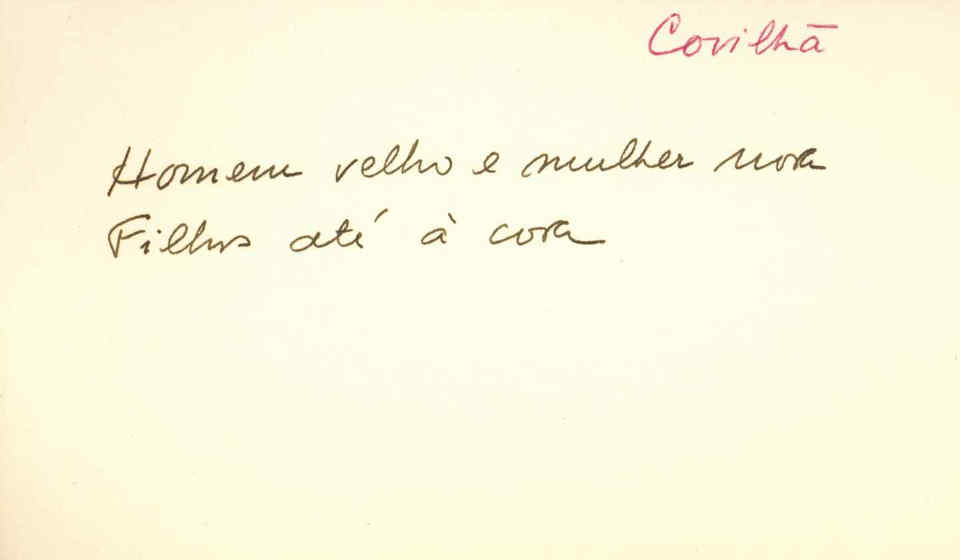 Covilhã
Homem velho e mulher nova
Filhos até à cova